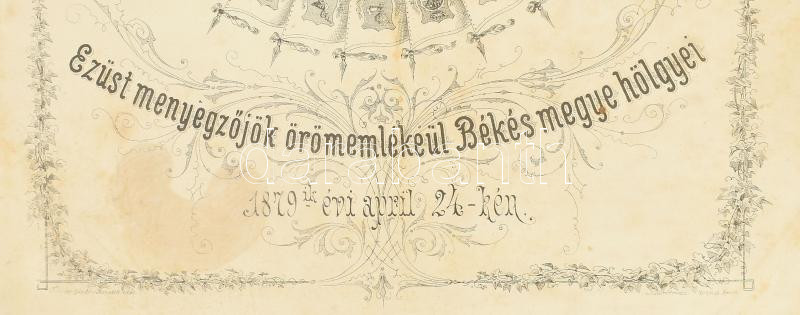 Ezüst menyegzőjök örömemlékeül Békés megye hölgyei
1879ik évi april 24-kén.
darabanth